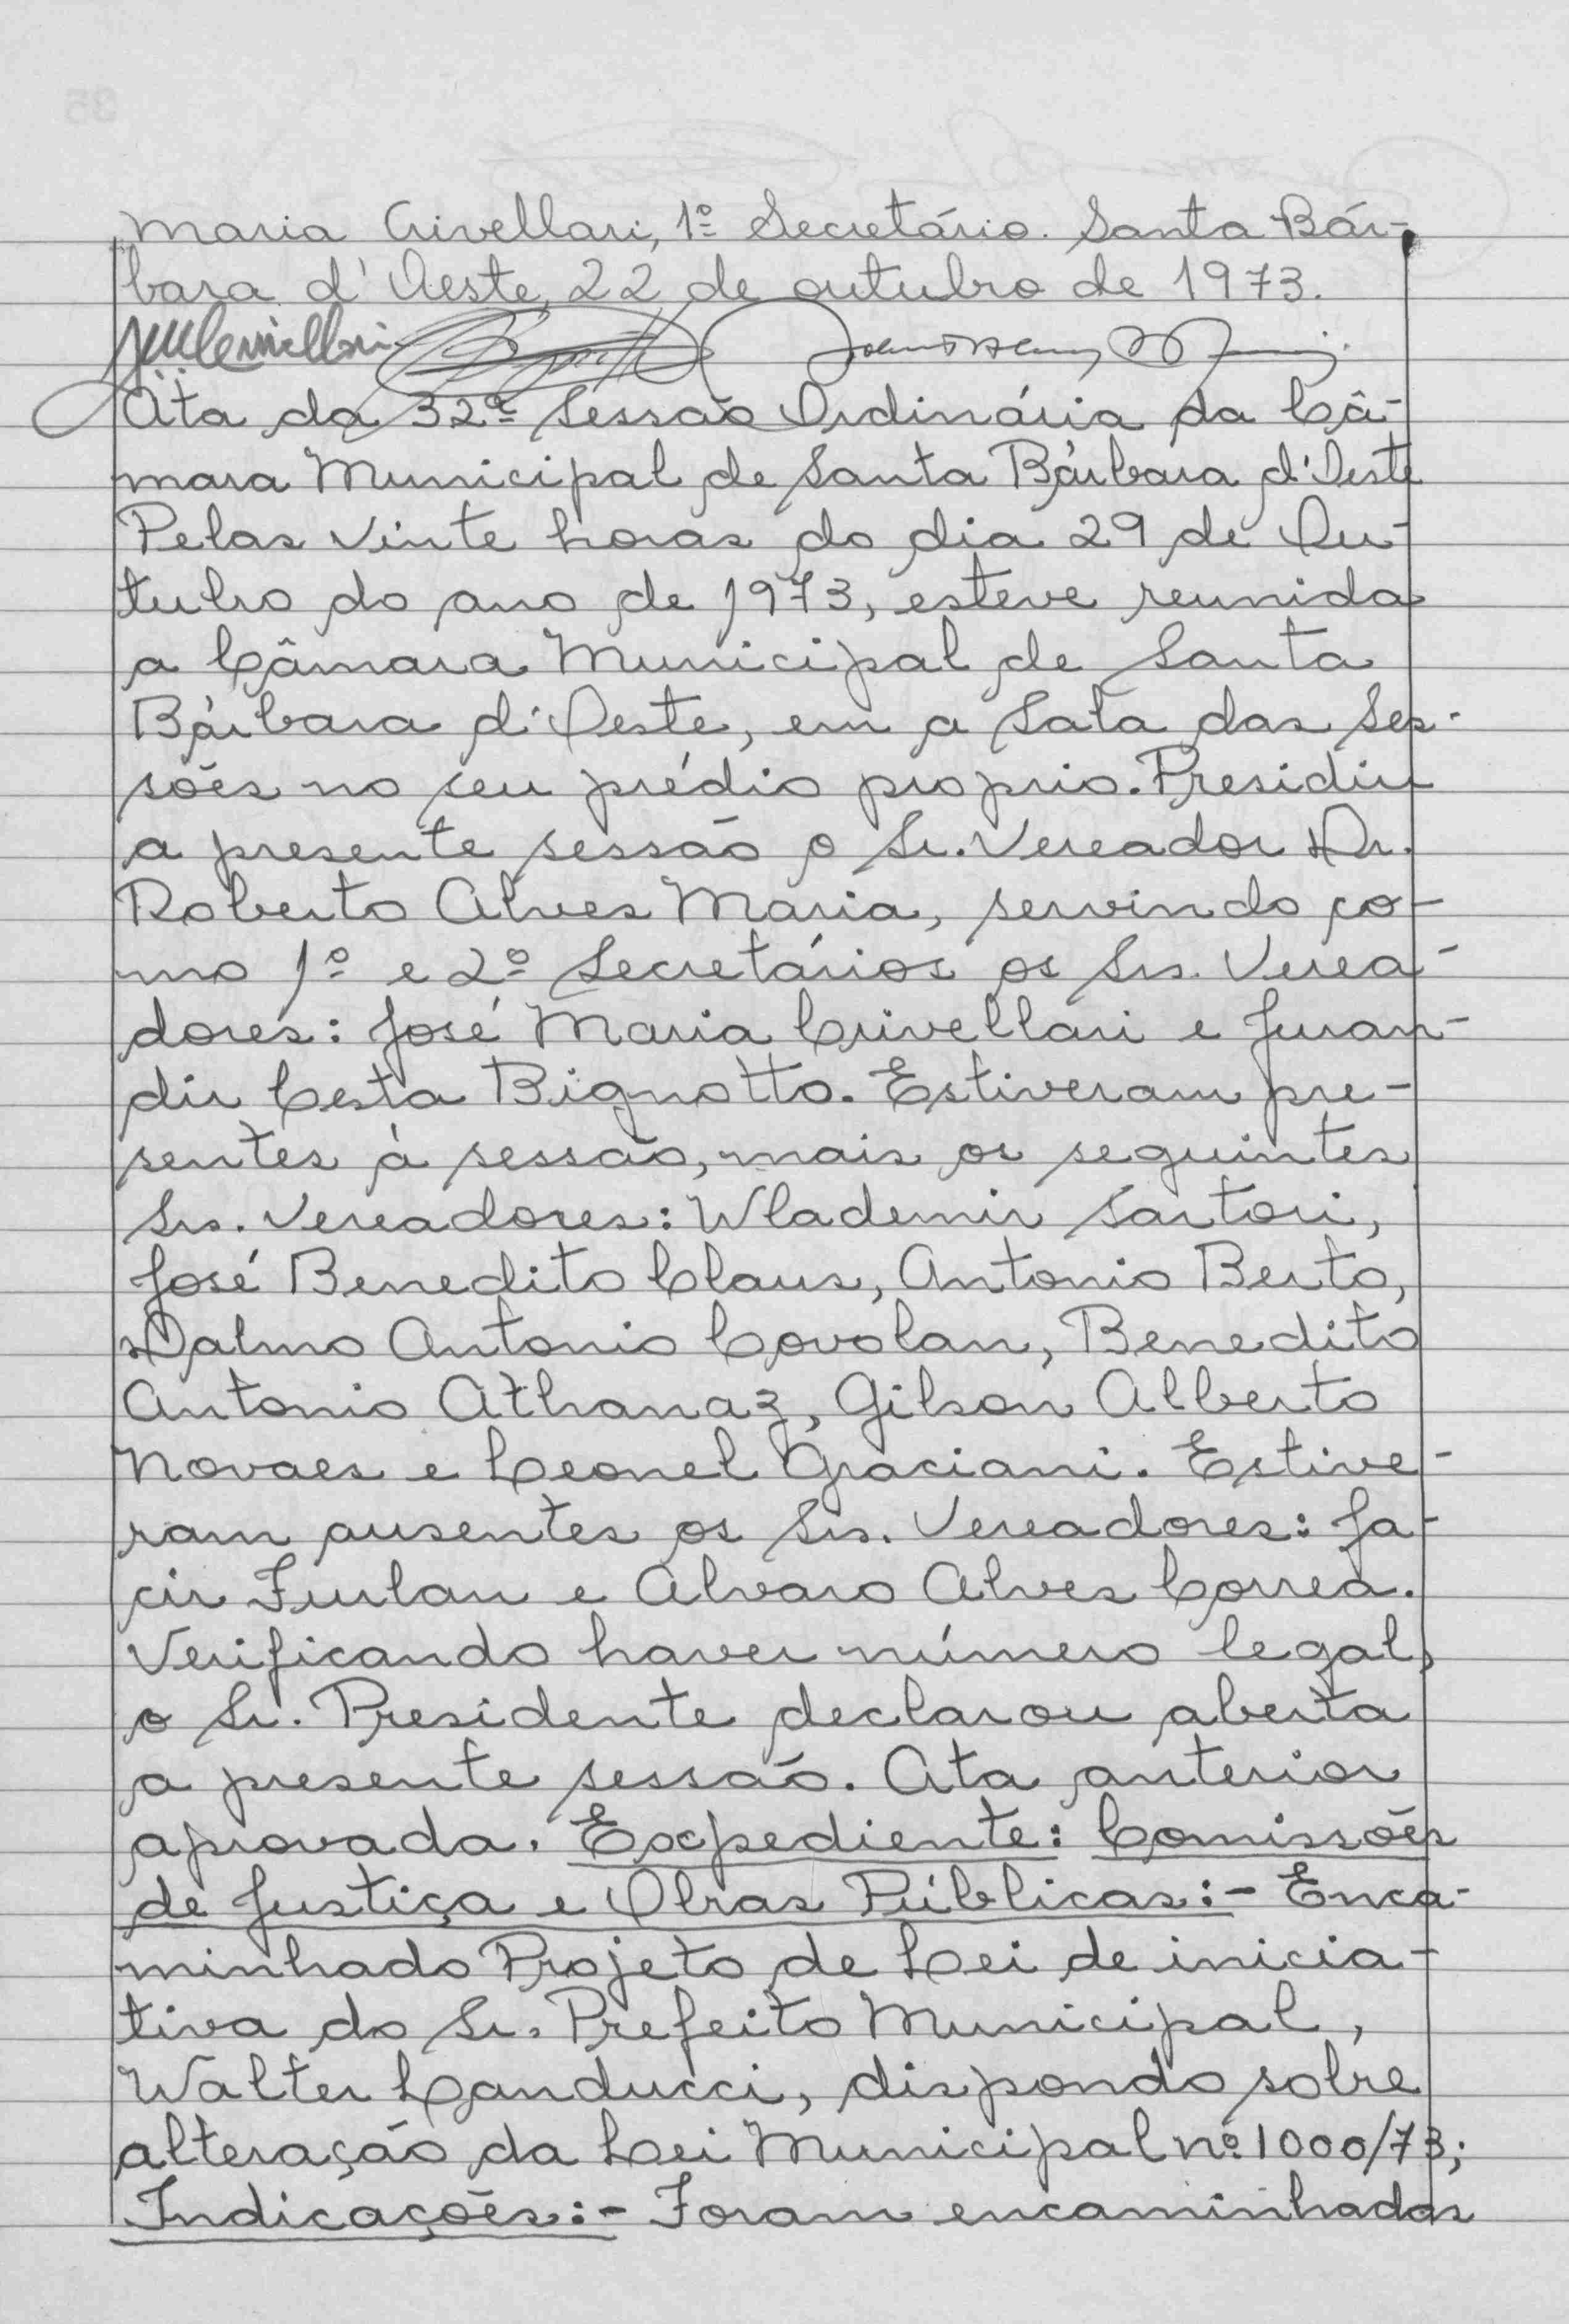 Maria Crivellari, 1º Secretário. Santa Bár-
bara d'Oeste, 22 de outubro de 1973.
Ata da 32ª Sessão Ordinária da Câ-
mara Municipal de Santa Bárbara d'Oeste
Pelas vinte horas do dia 29 de Ou-
tubro do ano de 1973, esteve reunida
a Câmara Municipal de Santa
Bárbara d'Oeste, em a Sala das Ses-
sões no seu prédio proprio. Presidiu
a presente sessão o Sr. Vereador Dr.
Roberto Alves Maria, servindo co-
mo 1º e 2º Secretários os Srs. Verea-
dores: José Maria Crivellari e Juran-
dir Cesta Bignotto. Estiveram pre-
sentes à sessão, mais os seguintes
Srs. Vereadores: Wlademir Sartori,
José Benedito Claus, Antonio Berto,
Dalmo Antonio Covolan, Benedito
Antonio Athanaz, Gilson Alberto
Novaes e Leonel Graciani. Estive-
ram ausentes os Srs. Vereadores: Ja-
cir Furlan e Alvaro Alves Correa.
Verificando haver número legal,
o Sr. Presidente declarou aberta
a presente sessão. Ata anterior
aprovada. Expediente: Comissões
de Justiça e Obras Públicas:- Enca-
minhado Projeto de Lei de inicia-
tiva do Sr. Prefeito Municipal,
Walter Landucci, dispondo sobre
alteração da Lei Municipal nº 1000/73;
Indicações:- Foram encaminhadas